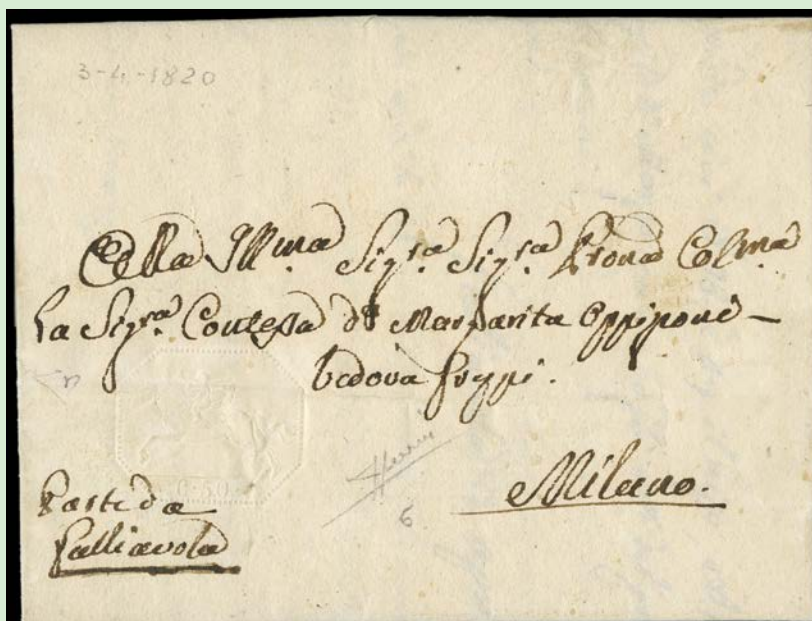 3-4-1820
Alla Ill.ma Sig.ra Sig.ra Prona Col.ma
La Sig.ra Contessa D. Margarita Oppiponi -
Vedova Greppi.
C. 50
Milano.
6
Parte da
Galliavola